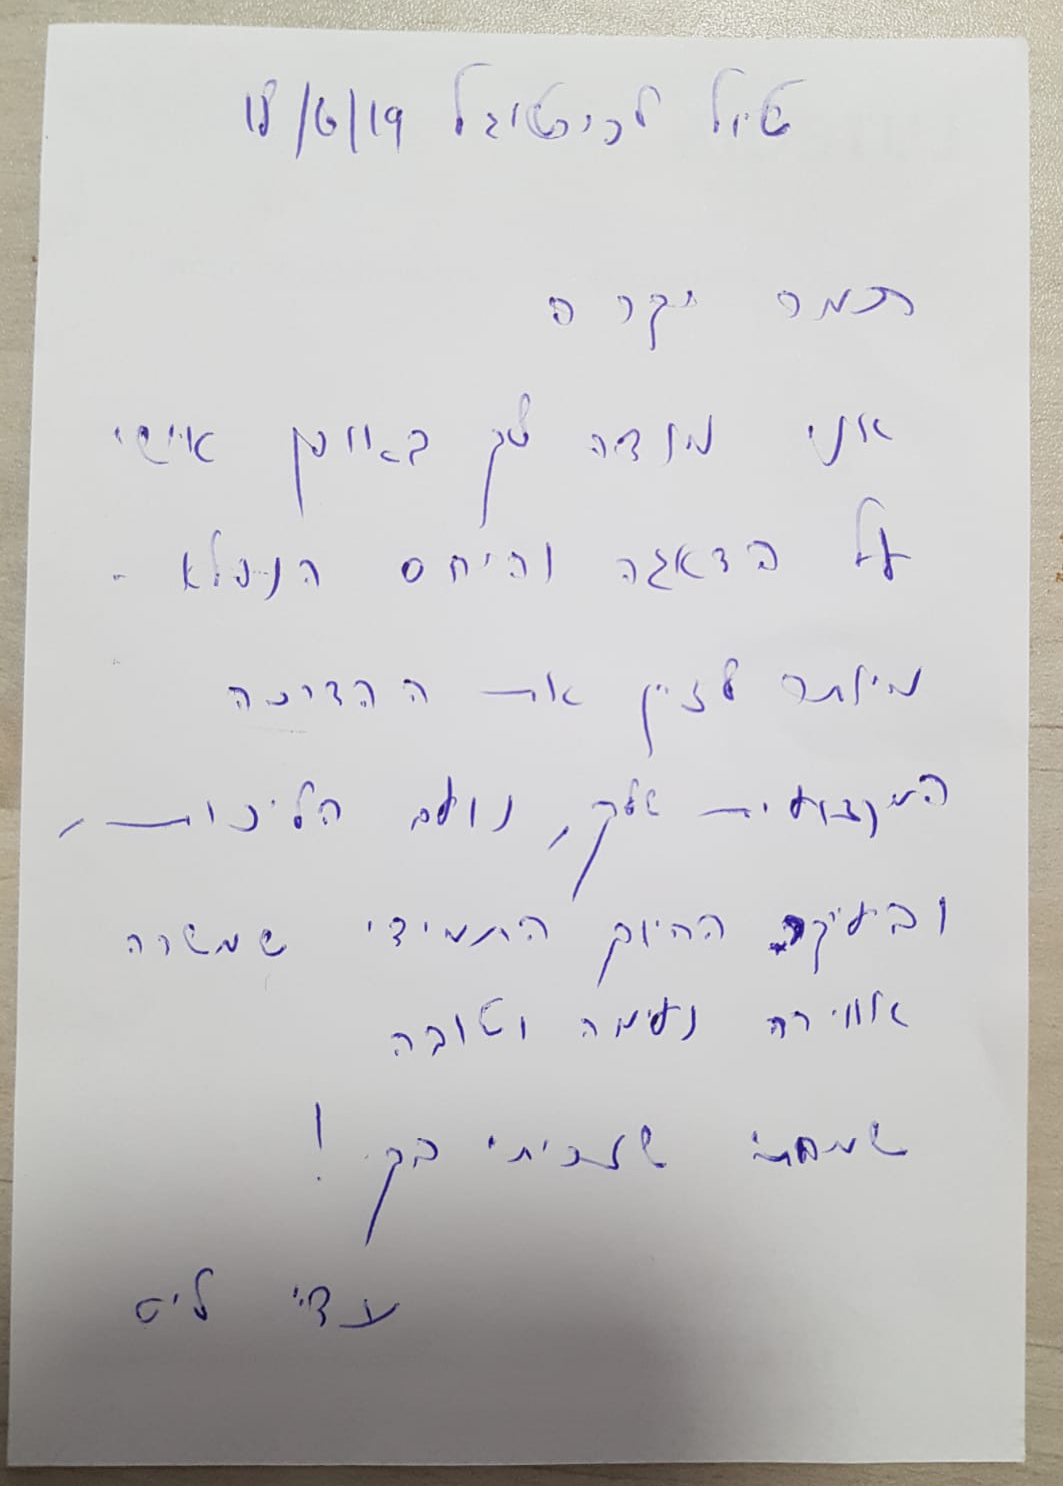 טיול לפורטוגל 18/6/19
תמר יקרה
אני מודה לך באופן אישי
על הדאגה והיחס הנפלא -
מיותר לציין את ההדרכה
המקצועית שלך, נועם הליכות,
ובעיקר החיוך התמידי שמשרה
אווירה נעימה וטובה
שמחתי שזכיתי בך!
עדי ליס